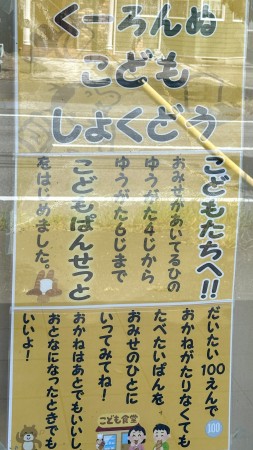 くーろんぬ
こども
しょくどう
こどもたちへ!!
おみせがあいてるひの
ゆうがた4じから
ゆうがた6じまで
こどもぱんせっと
をはじめました。
だいたい100えんで
おかねがたりなくても
たべたいぱんを
おみせのひとに
いってみてね!
おかねはあとでもいいし
おとなになったときでも
いいよ!
100
こども食堂